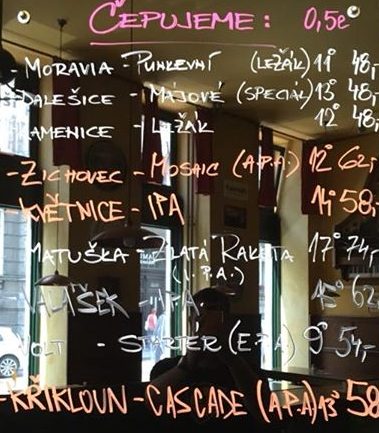 ČEPUJEME: 0,5ℓ
- MORAVIA - PUNKEVNÍ (LEŽÁK) 11° 48,-
DALEŠICE - MÁJOVÉ (SPECIÁL) 13° 48,-
KAMENICE - LEŽÁK 12° 48,-
- ZICHOVEC - MOSAIC (A.P.A.) 12° 62,-
KVĚTNICE - IPA 14° 58,-
MATUŠKA - ZLATÁ RAKETA 17° 74,-
(I.P.A.)
VALÁŠEK - IPA 15° 62
- STARTÉR (E.P.A) 9° 54,-
- KŘIKLOUN - CASCADE (A.P.A) 13° 58